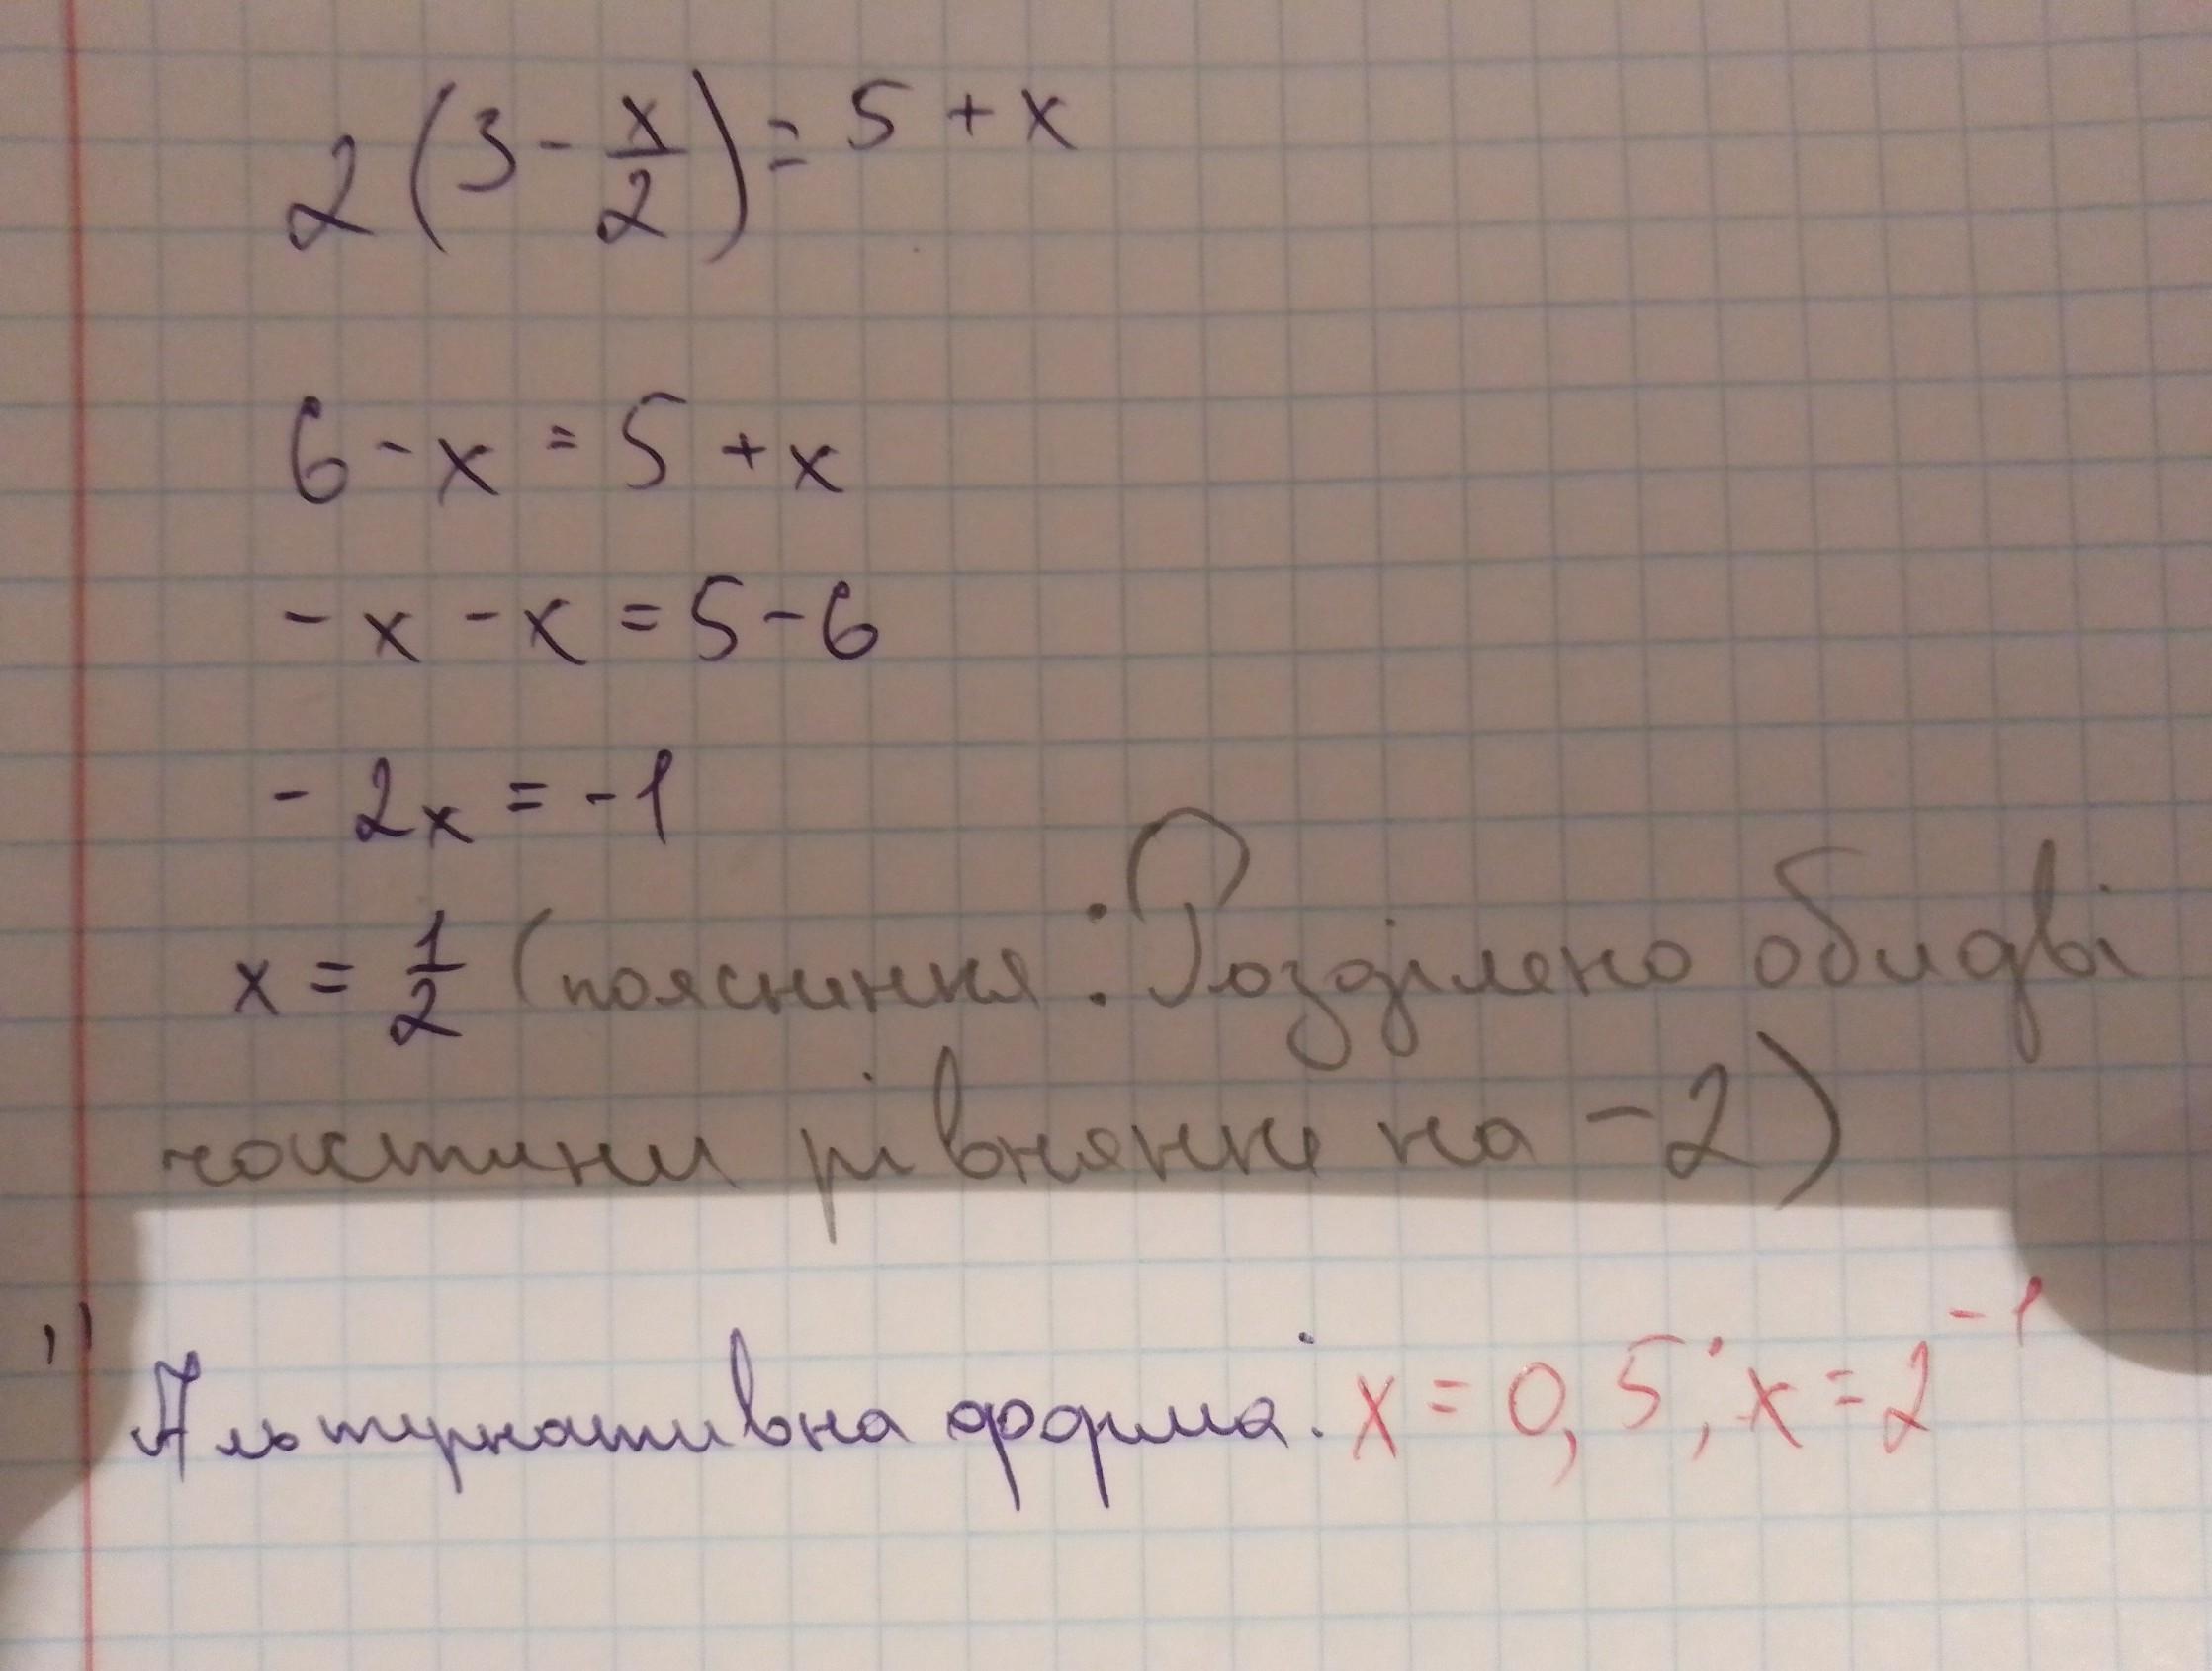 2(3 - x/2) = 5 + x
6 - x = 5 + x
- x - x = 5 - 6
- 2x = -1
x = 1/2 (пояснення: Розділено обидві
частини рівняння на -2)
Альтернативна форма: x = 0,5; x = 2⁻¹